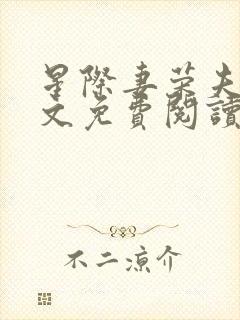 星際妻荣夫
文免費閱讀
不二凉介